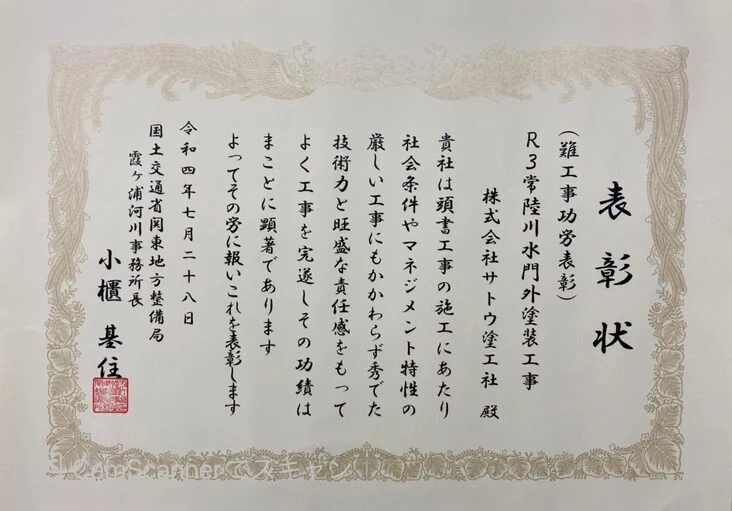 表彰状
（難工事功労表彰）
R３常陸川水門外塗装工事
株式会社サトウ塗工社　殿
貴社は頭書工事の施工にあたり
社会条件やマネジメント特性の
厳しい工事にもかかわらず秀でた
技術力と旺盛な責任感をもって
よく工事を完遂しその功績は
まことに顕著であります
よってその労に報いこれを表彰します
令和四年七月二十八日
国土交通省関東地方整備局
霞ヶ浦河川事務所長
小櫃　基住
CamScannerでスキャン